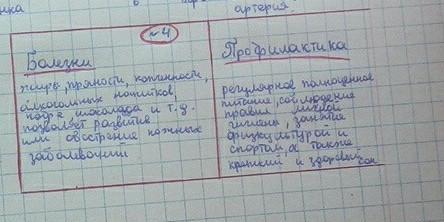 нка
в
артерия
№4
Болезни
жиры, пряности, копчености,
алкогольных напитков,
кофе, шоколада и т.д.
позволяет развитие
или обострение кожных
заболеваний
Профилактика
регулярное полноценное
питание, соблюдение
правил личной
гигиены, занятие
физкультурой и
спортом, а также
крепкий и здоровый
сон